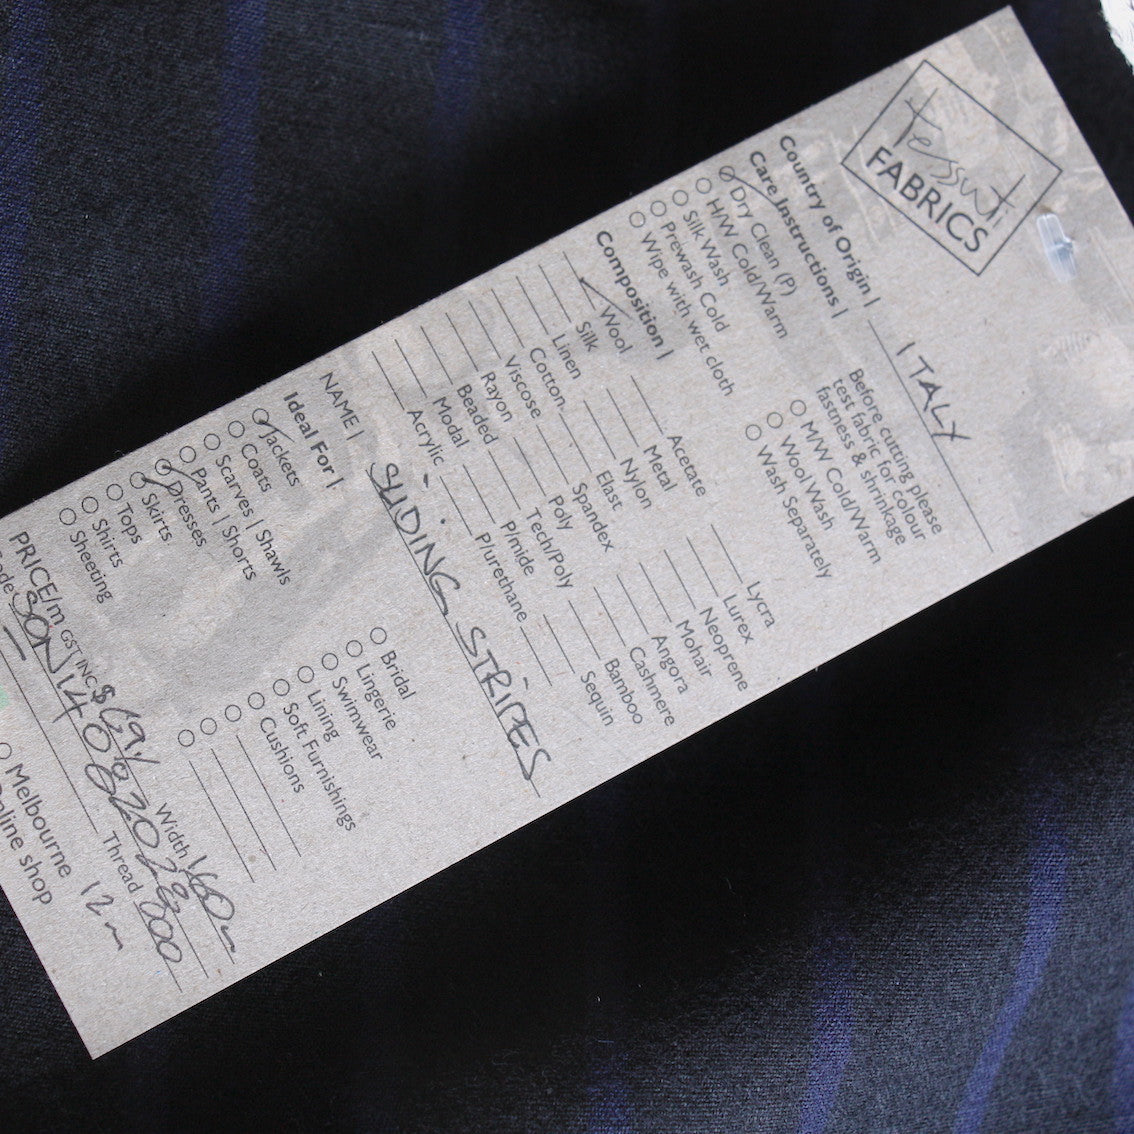 tessuti
FABRICS
Country of Origin | ITALY
Care Instructions |
Before cutting please
test fabric for colour
fastness & shrinkage
Dry Clean (P)
H/W Cold/Warm
Silk Wash
Prewash Cold
Wipe with wet cloth
M/W Cold/Warm
Wool Wash
Wash Separately
Composition |
Wool
Silk
Linen
Cotton
Viscose
Rayon
Beaded
Modal
Acrylic
Acetate
Metal
Nylon
Elast
Spandex
Poly
Tech/Poly
P/mide
P/urethane
Lycra
Lurex
Neoprene
Mohair
Angora
Cashmere
Bamboo
Sequin
NAME | SLIDING STRIPES
Ideal For |
Jackets
Coats
Scarves | Shawls
Pants | Shorts
Dresses
Skirts
Tops
Shirts
Sheeting
Bridal
Lingerie
Swimwear
Lining
Soft Furnishings
Cushions
PRICE/m GST INC $69 Width
Thread
Melbourne 12m
shop